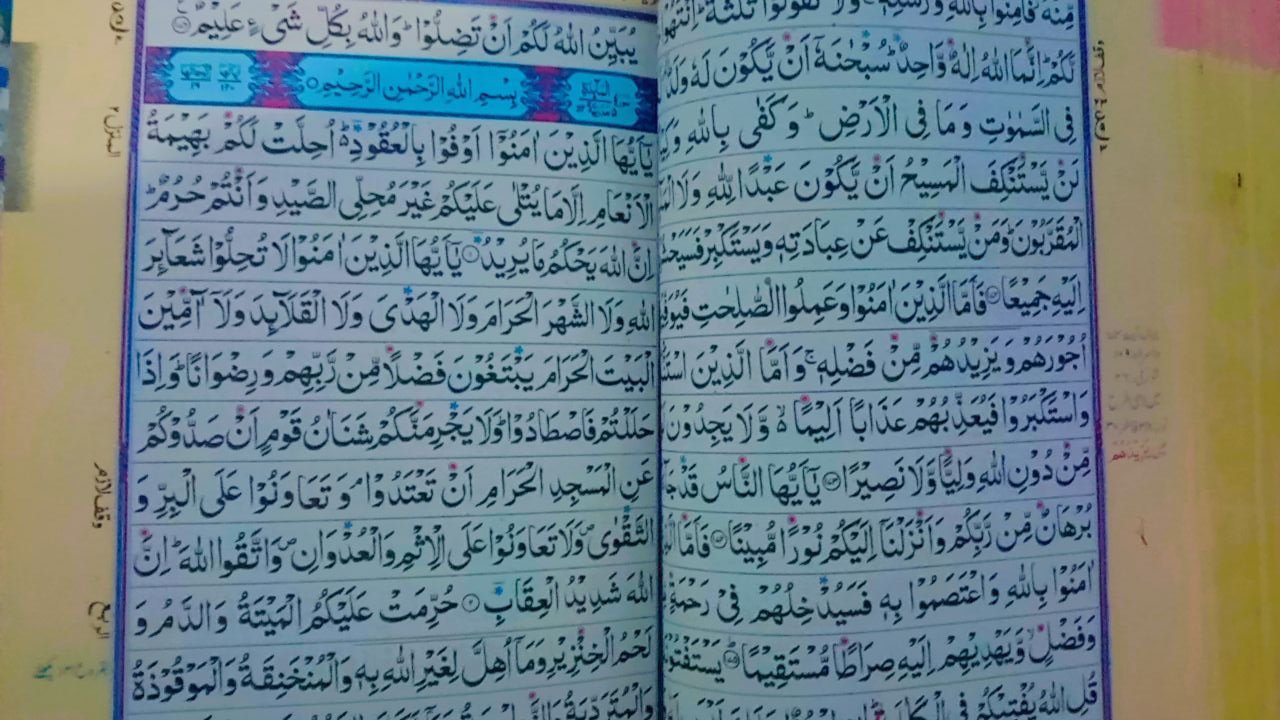 مِنْهُ فَاٰمِنُوْا بِاللّٰهِ وَرُسُلِهٖ وَلَا تَقُوْلُوْا ثَلٰثَةٌ ؕ اِنْتَهُوْا
لَّكُمْ ؕ اِنَّمَا اللّٰهُ اِلٰهٌ وَّاحِدٌ ؕ سُبْحٰنَهٗۤ اَنْ يَّكُوْنَ لَهٗ وَلَدٌ
فِى السَّمٰوٰتِ وَمَا فِى الْاَرْضِ ؕ وَكَفٰى بِاللّٰهِ
لَنْ يَّسْتَنْكِفَ الْمَسِيْحُ اَنْ يَّكُوْنَ عَبْدًا لِّلّٰهِ وَلَا
الْمُقَرَّبُوْنَ ؕ وَمَنْ يَّسْتَنْكِفْ عَنْ عِبَادَتِهٖ وَيَسْتَكْبِرْ
اِلَيْهِ جَمِيْعًا ۝۱۷۲ فَاَمَّا الَّذِيْنَ اٰمَنُوْا وَعَمِلُوا الصّٰلِحٰتِ
اُجُوْرَهُمْ وَيَزِيْدُهُمْ مِّنْ فَضْلِهٖ ۚ وَاَمَّا الَّذِيْنَ
وَاسْتَكْبَرُوْا فَيُعَذِّبُهُمْ عَذَابًا اَلِيْمًا ۙ وَّلَا يَجِدُوْنَ
مِّنْ دُوْنِ اللّٰهِ وَلِيًّا وَّلَا نَصِيْرًا ۝۱۷۳ يٰۤاَيُّهَا النَّاسُ قَدْ
بُرْهَانٌ مِّنْ رَّبِّكُمْ وَاَنْزَلْنَاۤ اِلَيْكُمْ نُوْرًا مُّبِيْنًا ۝۱۷۴ فَاَمَّا
اٰمَنُوْا بِاللّٰهِ وَاعْتَصَمُوْا بِهٖ فَسَيُدْخِلُهُمْ فِىْ رَحْمَةٍ
وَفَضْلٍ ۙ وَّيَهْدِيْهِمْ اِلَيْهِ صِرَاطًا مُّسْتَقِيْمًا ۝۱۷۵ يَسْتَفْتُوْنَكَ
قُلِ اللّٰهُ يُفْتِيْكُمْ فِى
يُبَيِّنُ اللّٰهُ لَكُمْ اَنْ تَضِلُّوْا ؕ وَاللّٰهُ بِكُلِّ شَىْءٍ عَلِيْمٌ ۝۱۷۶
بِسْمِ اللّٰهِ الرَّحْمٰنِ الرَّحِيْمِ
يٰۤاَيُّهَا الَّذِيْنَ اٰمَنُوْۤا اَوْفُوْا بِالْعُقُوْدِ ؕ۬ اُحِلَّتْ لَكُمْ بَهِيْمَةُ
الْاَنْعَامِ اِلَّا مَا يُتْلٰى عَلَيْكُمْ غَيْرَ مُحِلِّى الصَّيْدِ وَاَنْتُمْ حُرُمٌ ؕ
اِنَّ اللّٰهَ يَحْكُمُ مَا يُرِيْدُ ۝۱ يٰۤاَيُّهَا الَّذِيْنَ اٰمَنُوْا لَا تُحِلُّوْا شَعَآئِرَ
اللّٰهِ وَلَا الشَّهْرَ الْحَرَامَ وَلَا الْهَدْىَ وَلَا الْقَلَآئِدَ وَلَاۤ آٰمِّيْنَ
الْبَيْتَ الْحَرَامَ يَبْتَغُوْنَ فَضْلًا مِّنْ رَّبِّهِمْ وَرِضْوَانًا ؕ وَاِذَا
حَلَلْتُمْ فَاصْطَادُوْا ؕ وَلَا يَجْرِمَنَّكُمْ شَنَاٰنُ قَوْمٍ اَنْ صَدُّوْكُمْ
عَنِ الْمَسْجِدِ الْحَرَامِ اَنْ تَعْتَدُوْا ۘ وَتَعَاوَنُوْا عَلَى الْبِرِّ وَ
التَّقْوٰى ۪ وَلَا تَعَاوَنُوْا عَلَى الْاِثْمِ وَالْعُدْوَانِ ۪ وَاتَّقُوا اللّٰهَ ؕ اِنَّ
اللّٰهَ شَدِيْدُ الْعِقَابِ ۝۲ حُرِّمَتْ عَلَيْكُمُ الْمَيْتَةُ وَالدَّمُ وَ
لَحْمُ الْخِنْزِيْرِ وَمَاۤ اُهِلَّ لِغَيْرِ اللّٰهِ بِهٖ وَالْمُنْخَنِقَةُ وَالْمَوْقُوْذَةُ
وَالْمُتَرَدِّيَةُ
المنزل ۲
وقف لازم
الربع